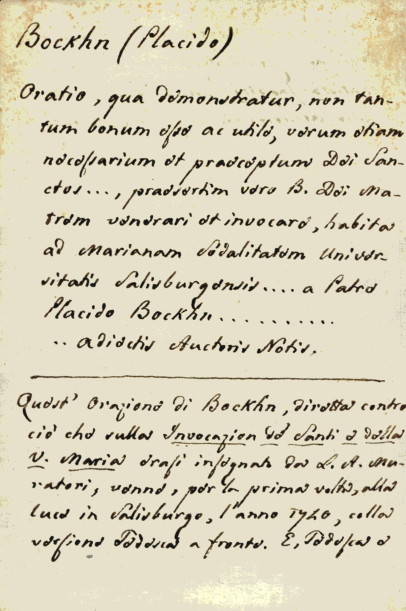 Bockhn (Placido)
Oratio, qua demonstratur, non tan-
tum bonum esse ac utile, verum etiam
necessarium et praeceptum Dei San-
ctos..., praesertim vero B. Dei Ma-
trem venerari et invocare, habita
ad Marianam Sodalitatem Univer-
sitatis Salisburgensis.... a Patre
Placido Bockhn..........
.. adiectis Auctoris Notis.
Quest' Orazione di Bockhn, diretta contro
ciò che sulla Invocazion de' Santi e della
V. Maria erasi insegnato da L. A. Mu-
ratori, venne, per la prima volta, alla
luce in Salisburgo, l'anno 1740, colla
versione Tedesca a fronte. E, Tedesca e